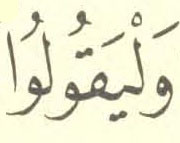 وَلْيَقُولُوا